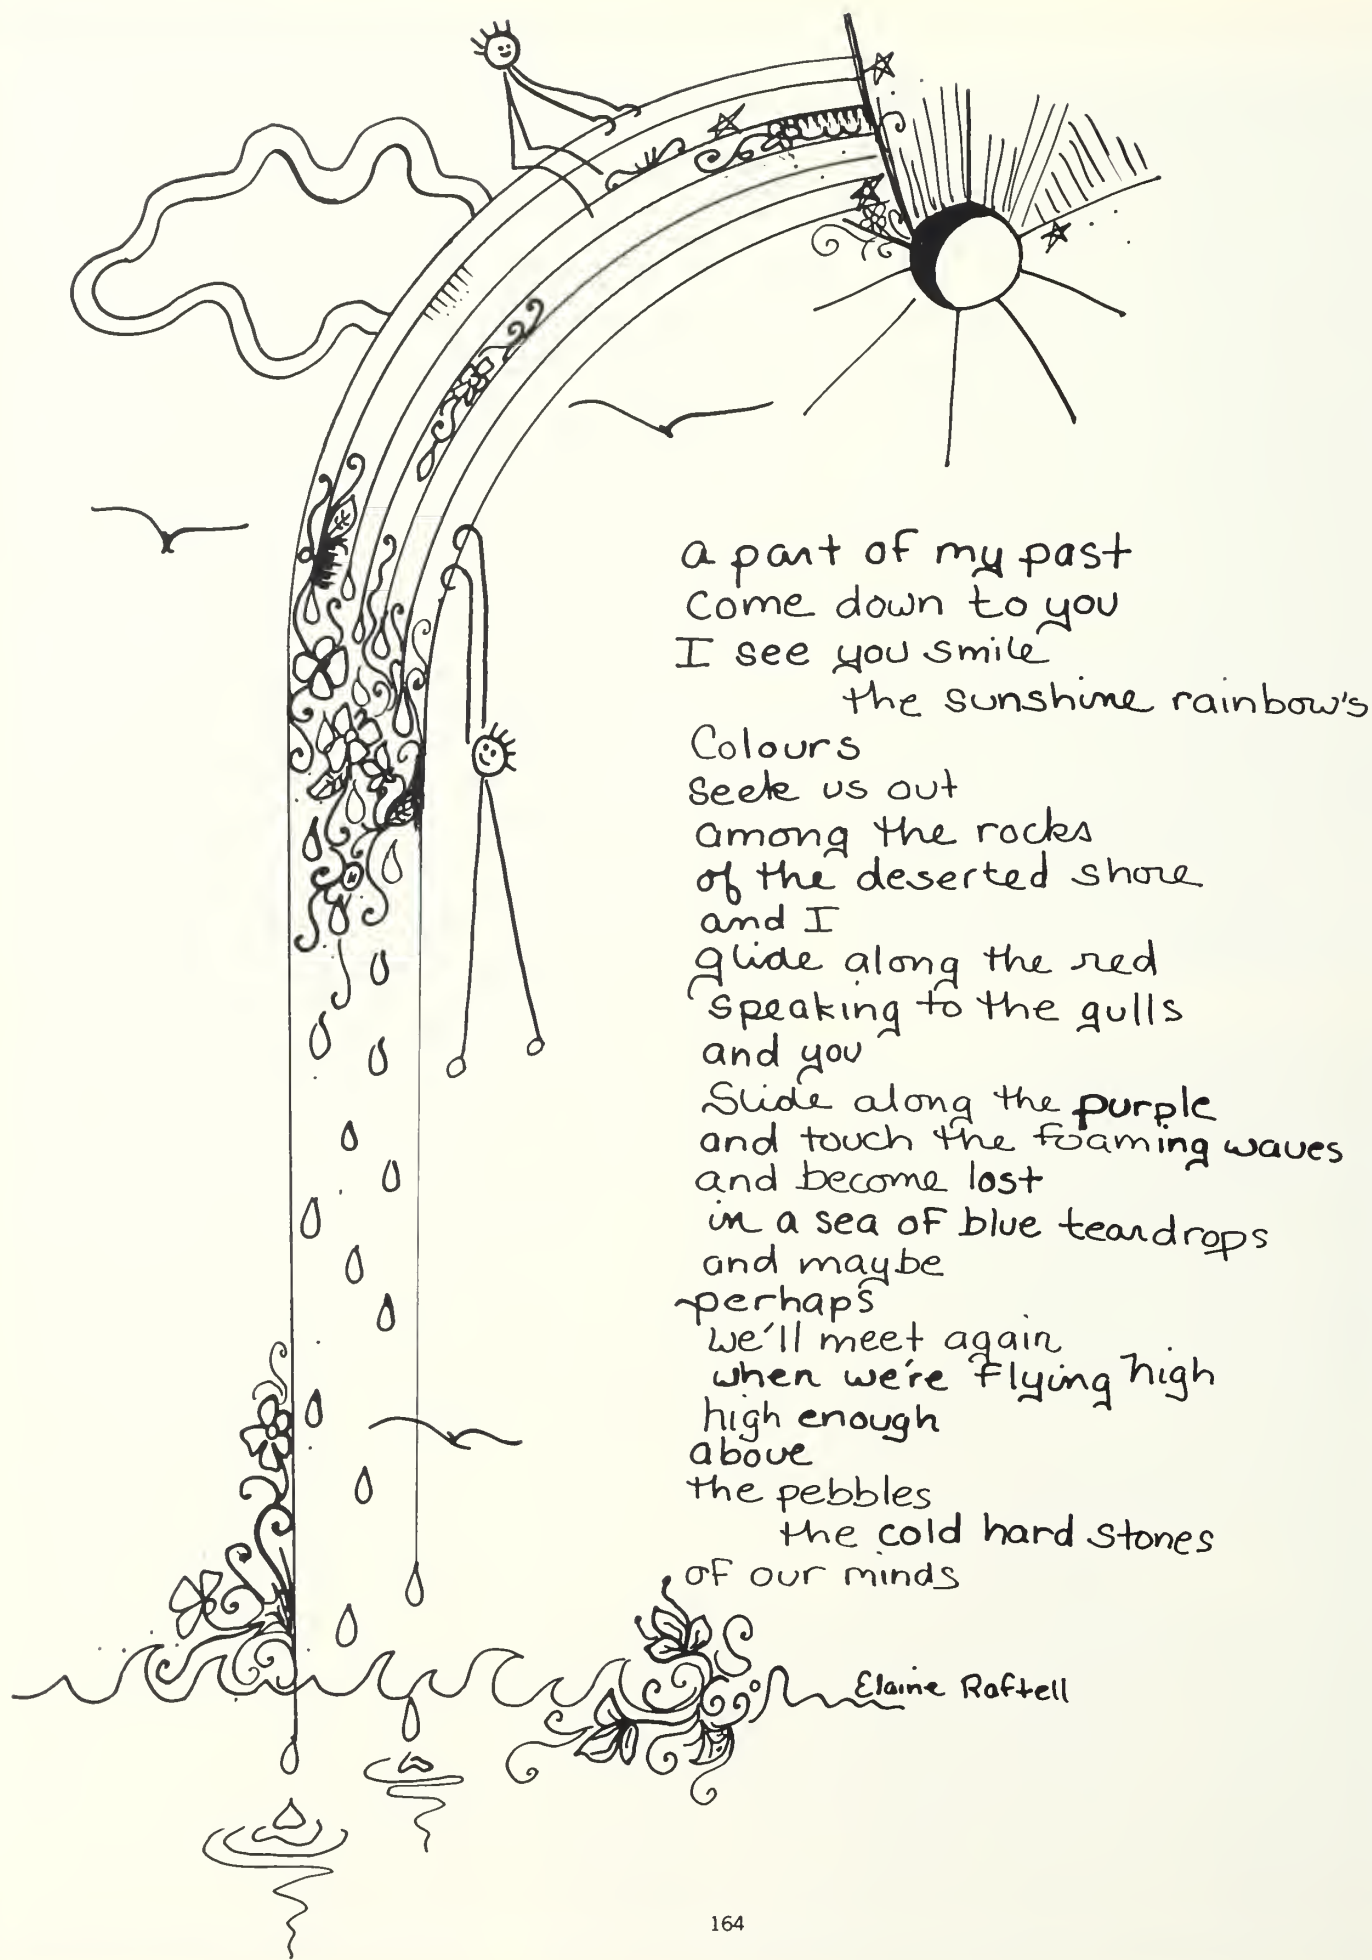 a part of my past
come down to you
I see you smile
the sunshine rainbow's
Colours
seek us out
among the rocks
of the deserted shore
and I
glide along the red
speaking to the gulls
and you
Slide along the purple
and touch the foaming waves
and become lost
in a sea of blue teardrops
and maybe
perhaps
we'll meet again
when we're flying high
high enough
above
the pebbles
the cold hard stones
of our minds
Elaine Raftell
164